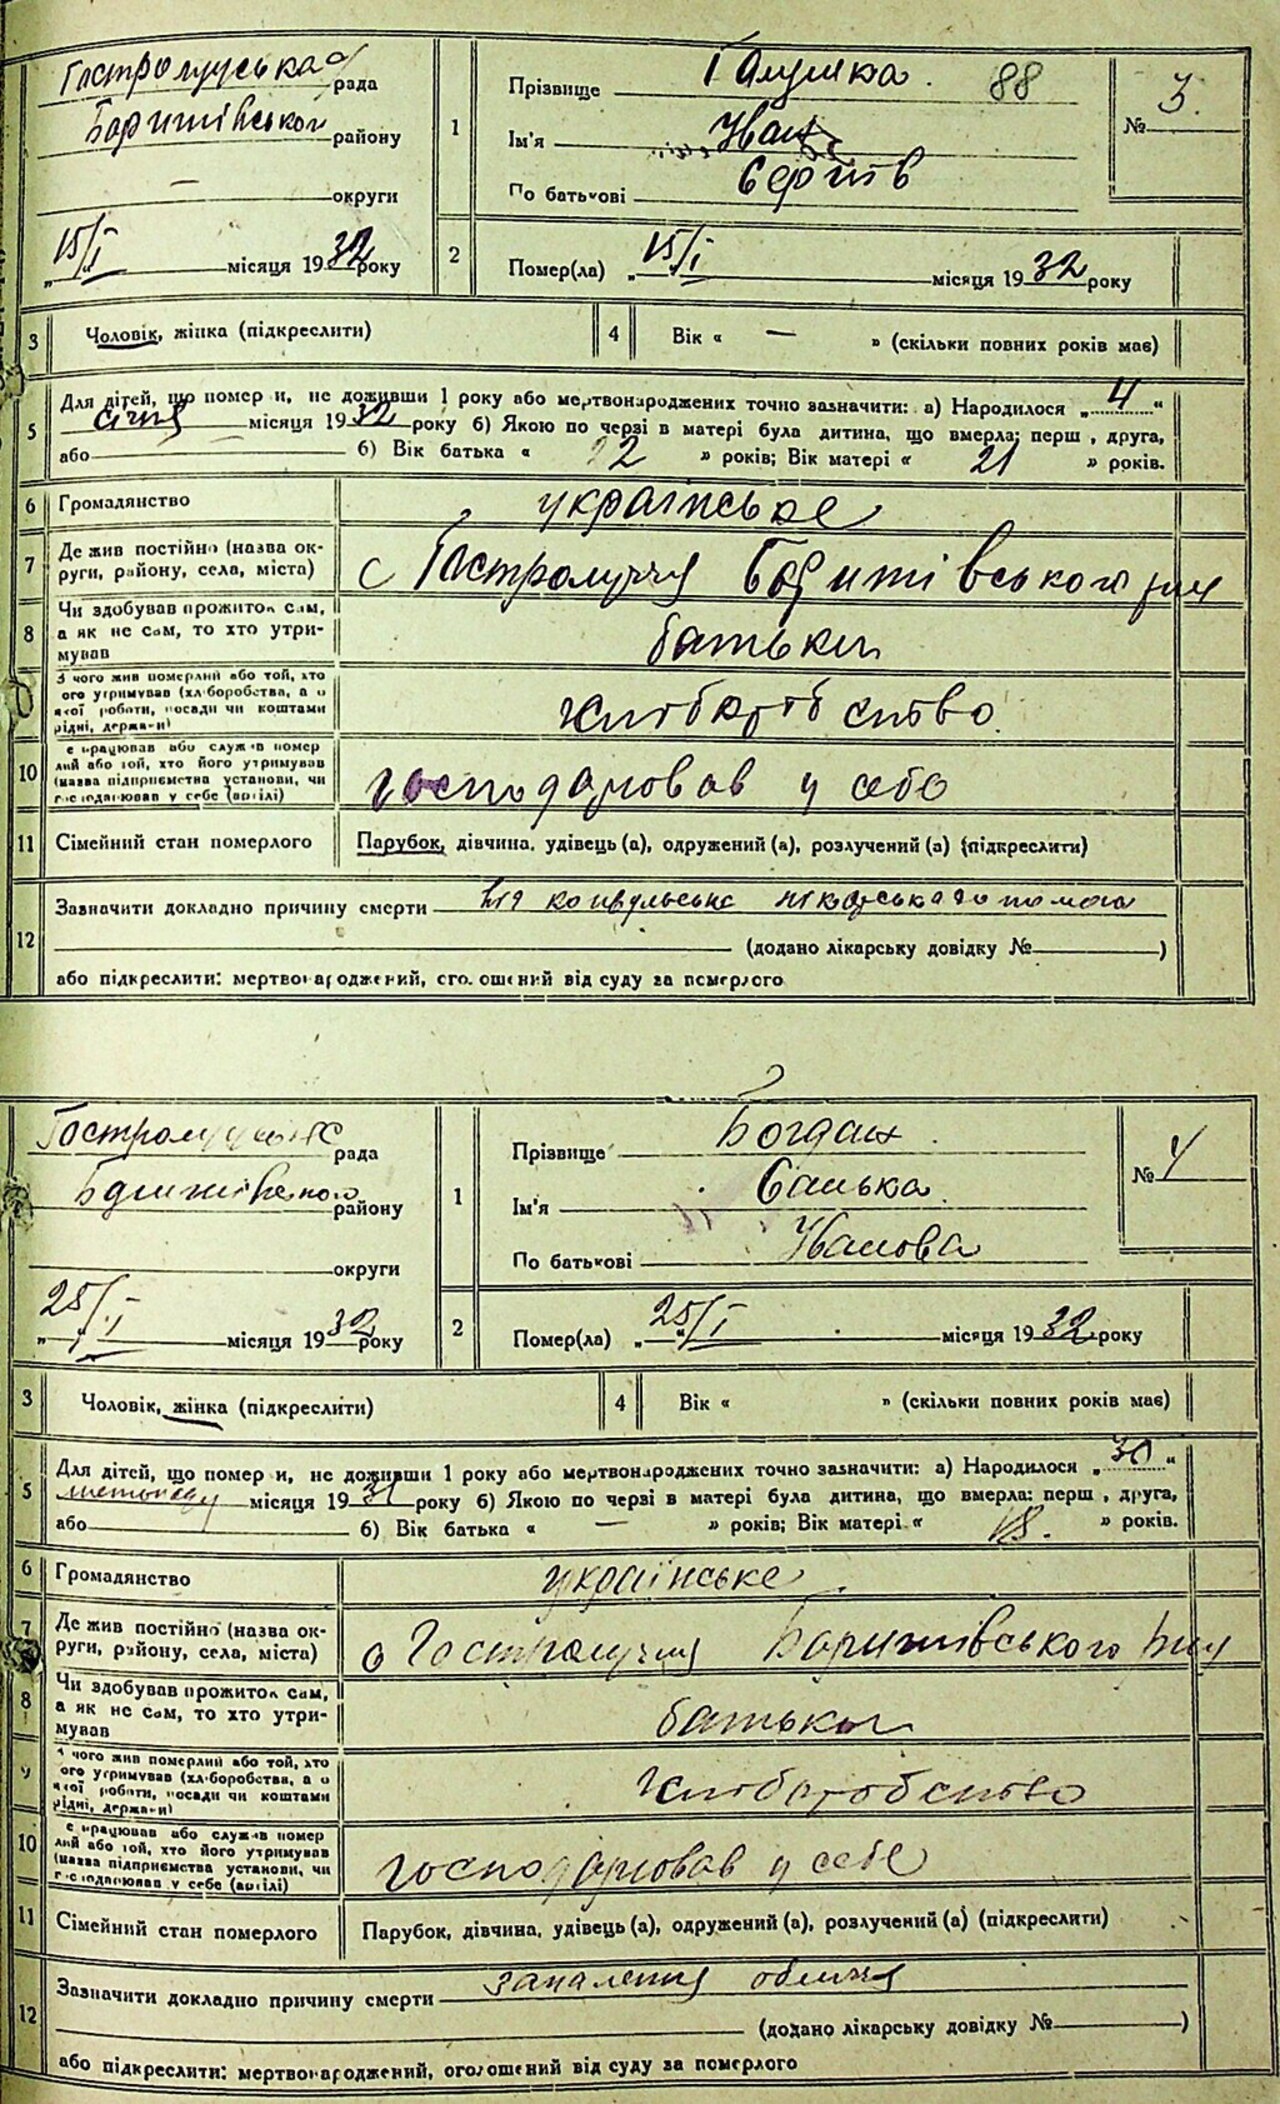 Гостролуцька рада
Баришівського району
— округи
15/I місяця 1932 року
1
Прізвище Галушка. 88
Ім'я Иван
По батькові Сергіїв
№ 3.
2
Помер(ла) „15/I місяця 1932 року
3 Чоловік, жінка (підкреслити)
4 Вік « — » (скільки повних років має)
5 Для дітей, що померли, не доживши 1 року або мертвонароджених точно зазначити: а) Народилося „4“
січня місяця 1932 року б) Якою по черзі в матері була дитина, що вмерла: перш , друга,
або б) Вік батька « 22 » років; Вік матері « 21 » років.
6 Громадянство українське
7 Де жив постійно (назва ок-
руги, району, села, міста) с Гостролуччя Баришівського р-ну
8 Чи здобував прожиток сам,
а як не сам, то хто утри-
мував батьки
З чого жив померлий або той, хто
ого утримував (хл-боробства, а о
якої роботи, посади чи коштами
рідні, держави) хліборобство
10 е працював або служив помер
лий або той, хто його утримував
(назва підприємства установи, чи
господарював у себе (артілі) господарював у себе
11 Сімейний стан померлого Парубок, дівчина, удівець(а), одружений(а), розлучений(а) (підкреслити)
12 Зазначити докладно причину смерти
(додано лікарську довідку № )
або підкреслити: мертвонароджений, оголошений від суду за померлого
рада
Баришівського району
округи
25/I місяця 1932 року
1
Прізвище Богдан.
Ім'я Санька
По батькові Иванова
№ 4
2
Помер(ла) „25/I місяця 1932 року
3 Чоловік, жінка (підкреслити)
4 Вік « » (скільки повних років має)
5 Для дітей, що померли, не доживши 1 року або мертвонароджених точно зазначити: а) Народилося „30“
листопаду місяця 1931 року б) Якою по черзі в матері була дитина, що вмерла: перш , друга,
або б) Вік батька « — » років; Вік матері « 18. » років.
6 Громадянство українське
7 Де жив постійно (назва ок-
руги, району, села, міста) с Гостролуччя Баришівського р-ну
8 Чи здобував прожиток сам,
а як не сам, то хто утри-
мував батьки
9 чого жив померлий або той, хто
ого утримував (хл-боробства, а о
якої роботи, посади чи коштами
рідні, держави) хліборобство
10 е працював або служив помер
лий або той, хто його утримував
(назва підприємства установи, чи
господарював у себе (артілі) господарював у себе
11 Сімейний стан померлого Парубок, дівчина, удівець(а), одружений(а), розлучений(а) (підкреслити)
12 Зазначити докладно причину смерти запалення обличчя
(додано лікарську довідку № )
або підкреслити: мертвонароджений, оголошений від суду за померлого